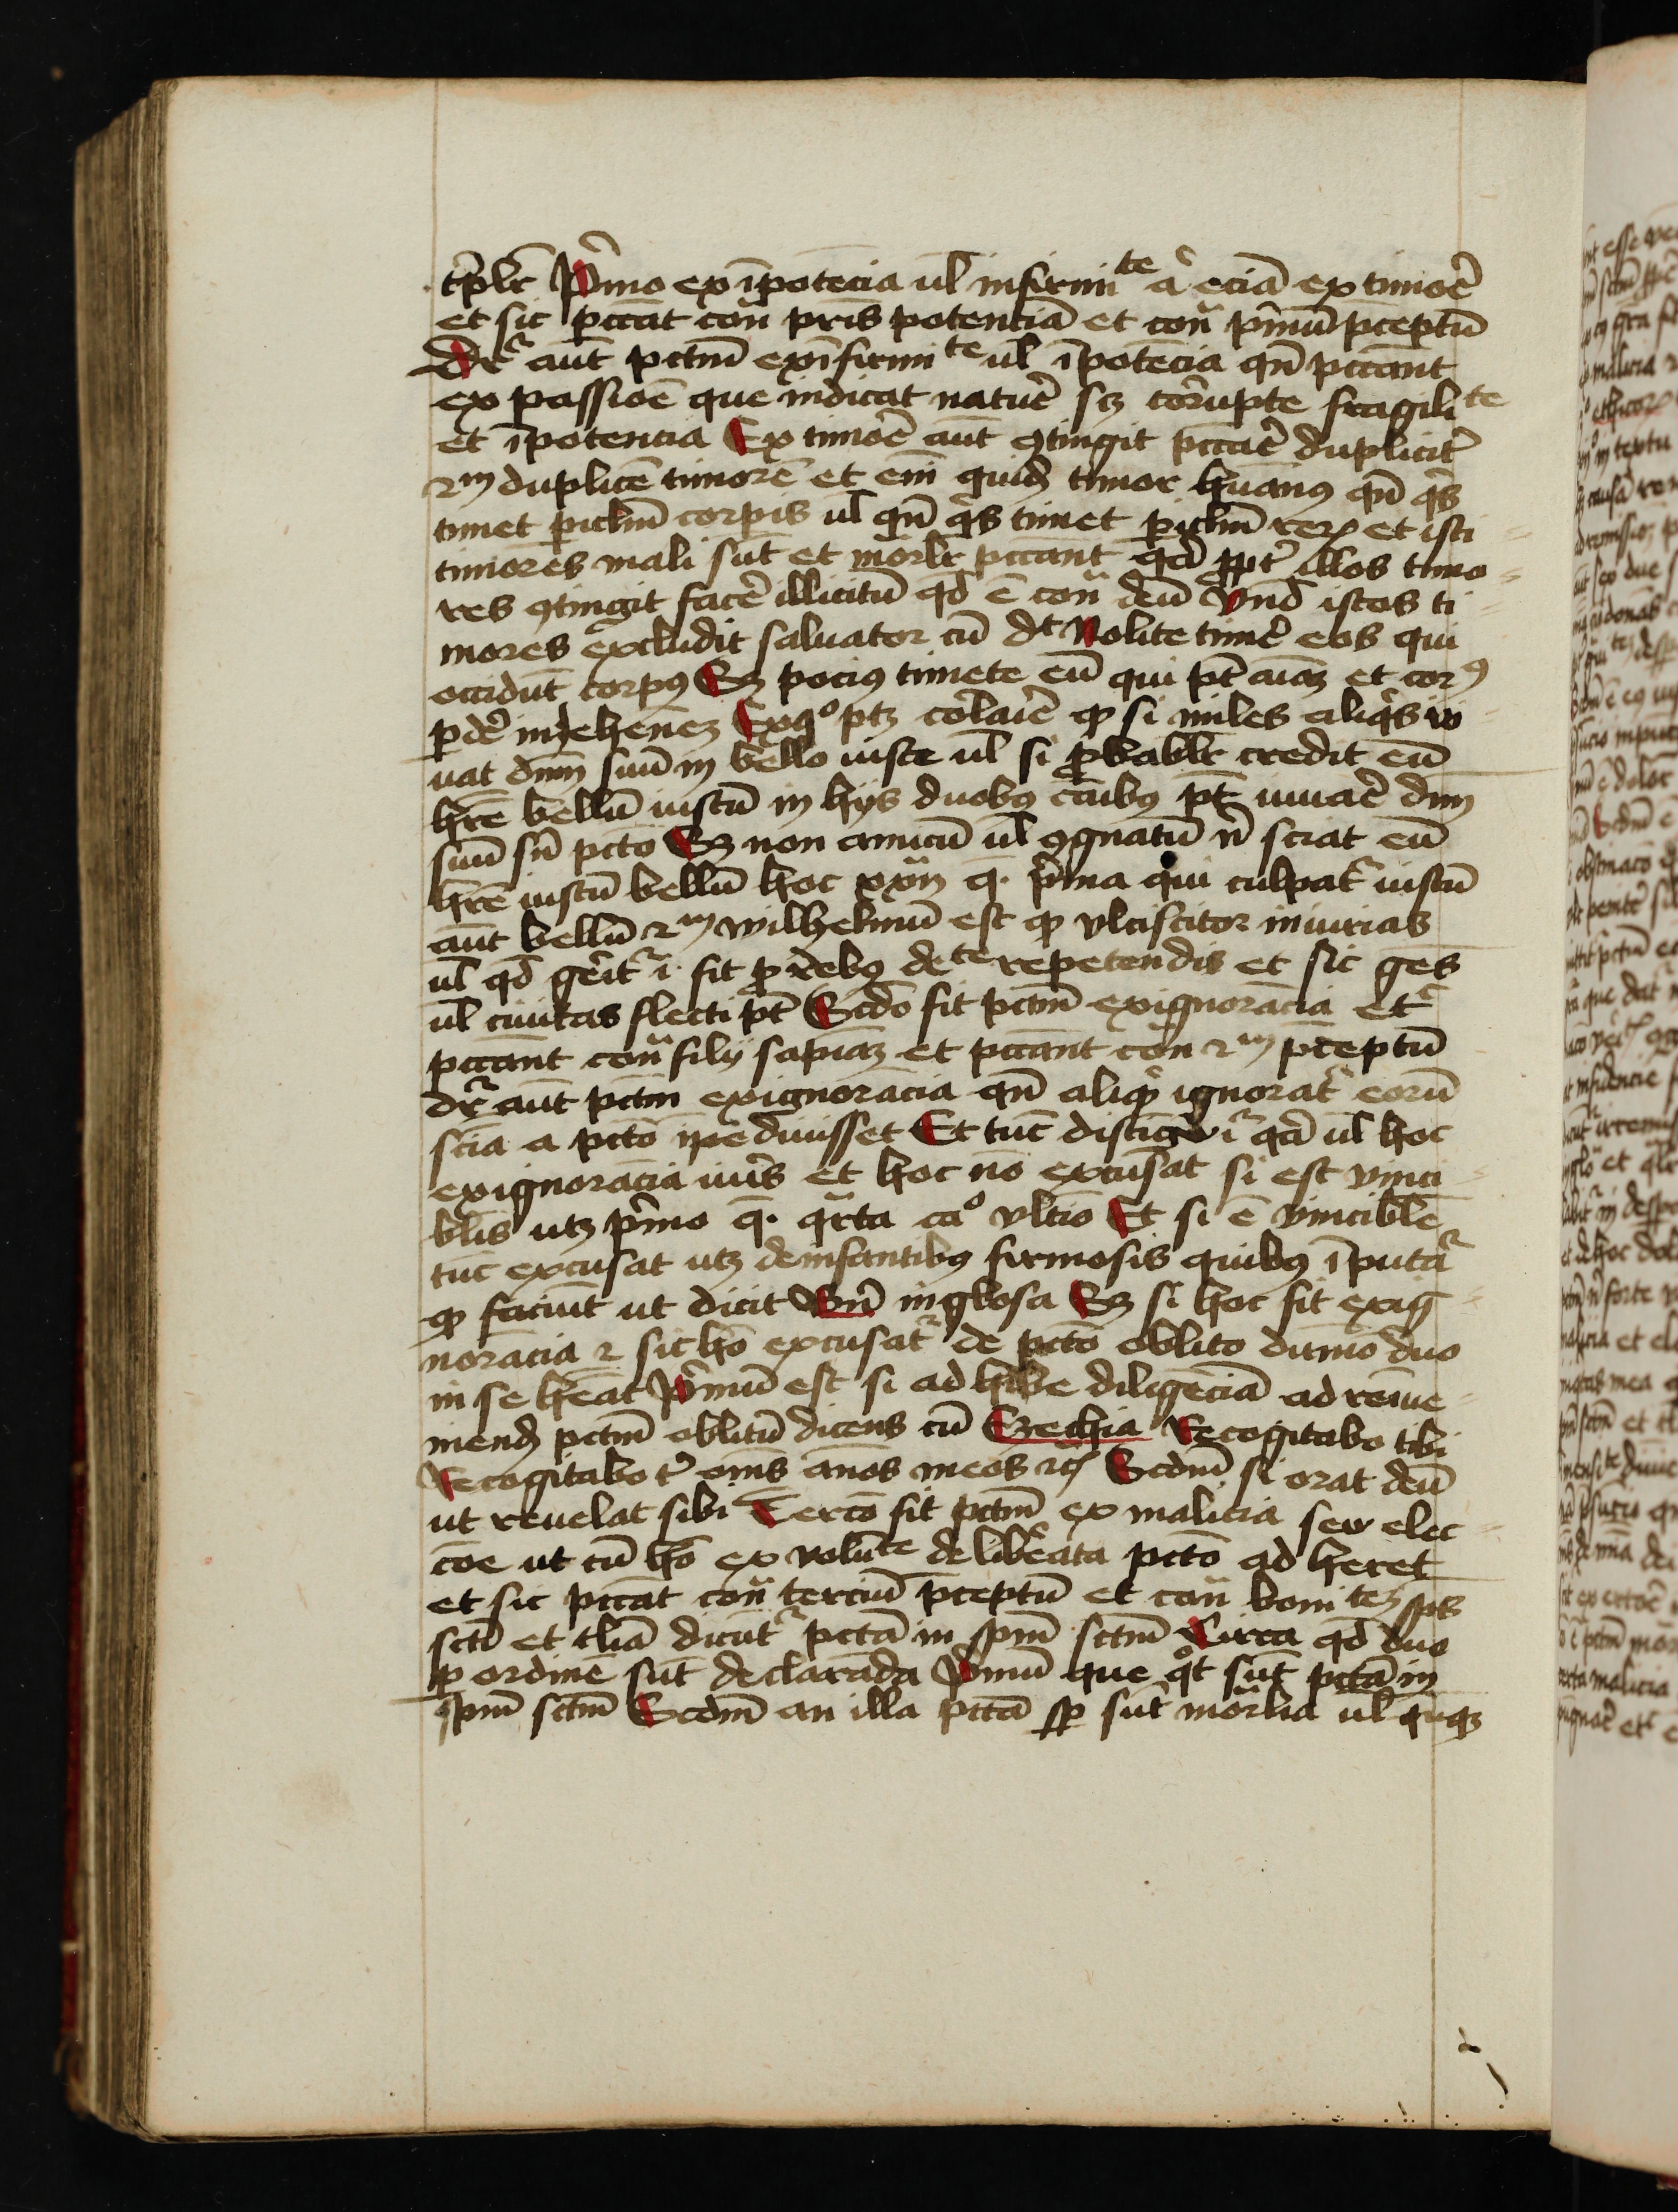 tͥplr̄ Pͥmo ex īpotēcia ul̄ infirmiᵗᵉ aͥ eciā ex timoꝛē
et sic pccāt cont̄ pr̄is potentiā et cont̄ pͥmū p̄ceptū
Dr̄ aūt pctm̄ ex īfirmiᵗᵉ ul̄ īpotēcia qn̄ pccānt
ex passiōe que indicat natur̄e scꝫ corrupte fragiliᵗᵉ
et īpotencia Ex timor̄e aūt ꝯtingit pccar̄e duplicit̄
2ᵐ duplicē timorē et em̄ quidꝫ timor hūanꝰ qn̄ qͥs
timet pic̄lm̄ corpis ul̄ qn̄ qͥs timet pic̄lm̄ reꝝ et isti
timores mali sūt et morlr̄ pccānt qꝛ ꝓpt̄ illos timo
res ꝯtingit facē illicitū qd̄ ē cont̄ deū Vnd̄ istos ti
mores excludit saluator cū dt̄ Nolite timē eos qui
occidūt corpꝰ Sꝫ pociꝰ timete eū qui pt̄ aīaꝫ et corꝰ
ꝑdē in gehenēꝫ Ex qͦ ptꝫ corlarīe ꝙ si miles aliqͥs iu
uat dnm̄ suū in bello iuste ul̄ si ꝓbablr̄ credit eū
hr̄e bellū iustū in hijs duobꝰ cāibꝰ pt̄ iuuar̄e dnm̄
suū sn̄ pctō Sꝫ non amicū ul̄ ꝯgnatū nͥ sciat eū
hr̄e iustū bellū hoc xxiij q. pͥma qui culpat̄ iustū
aūt bellū 2ᵐ wilhelmū est ꝙ vlciscitor iniurias
ul̄ qd̄ gerit̄ i. fit ꝓ rebꝰ deᵗᵉ repetendis et sic gēs
ul̄ ciuitas flecti pt̄ Scdo fit pctm̄ ex ignorācia Etͨ
pccānt cont̄ filij sapīaꝫ et pccānt cont̄ 2ᵐ p̄ceptū
dr̄ aūt pctm̄ ex ignorācia qn̄ aliqͥ ignorat̄ eoꝝ
scīa a pctō īpediuisset Et tūc distīgͦ i qꝛ ul̄ hoc
ex ignorācia iurͥs et hoc nō excusat si est vinci
blīs utꝫ pͥmo q. qͣrta caͦ vltīo Et si ē vincible
tūc excusat utꝫ de infantibꝰ firmosis quibꝰ īputat̄
ꝙ faciūt ut dicit Bn̄ in glosa Sꝫ si hoc fit ex ig
norācia 2 sic hō excusat̄ de pctō oblito dūmō duo
in se hēat Pͥmū est si adhibe diligēciā ad reīue
niendꝫ pctm̄ oblitū dicens cū Ezechia Recogitabo tibi
Recogitabo tͥ om̄s ānos meos 2c̄ Scdm̄ si orat deū
ut reuelat sibi Tercō fit pctm̄ ex malicia seu elec
cōe ut cū hō ex volūᵗᵉ delib̄ata pctō adheret
et sic pccāt cont̄ terciū p̄ceptū et cont̄ boniᵗᵉꝫ sp̄us
sctī et tliā dicūt̄ pctā in sp̄m sctm̄ Circa qd̄ duo
ꝑ ordinē sūt declarāda Pͥmū que qͦt sūt pctā in
sp̄m sctm̄ Scdm̄ an illa pctā sp̄ sūt morlia ul̄ qnqꝫ